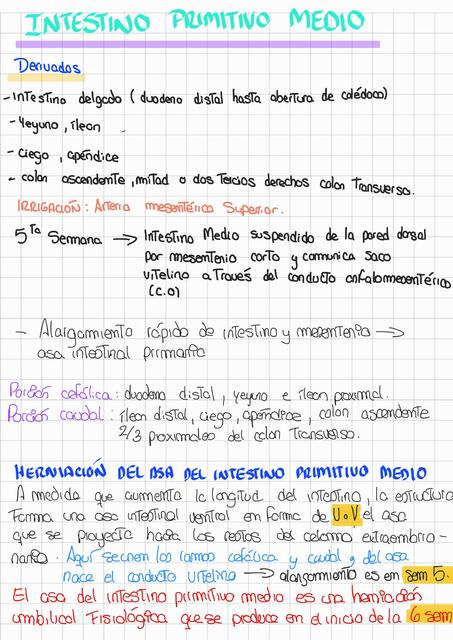 INTESTINO PRIMITIVO MEDIO
Derivados
- Intestino delgado ( duodeno distal hasta abertura de colédoco)
- Yeyuno , íleon
- ciego , apéndice
- colon ascendente , mitad o dos Tercios derechos colon Transverso.
IRRIGACIÓN: Arteria mesentérica Superior.
5Ta Semana → Intestino Medio suspendido de la pared dorsal
por mesenterio corto y comunica saco
vitelino a Través del conducto onfalomesentérico
(C.O)
- Alargamiento rápido de intestino y mesenterio →
asa intestinal primaria
Porción cefálica : duodeno distal , yeyuno e íleon proximal.
Porción caudal : íleon distal, ciego, apéndice , colon ascendente
2/3 proximales del colon Transverso.
HERNIACIÓN DEL ASA DEL INTESTINO PRIMITIVO MEDIO
A medida que aumenta la longitud del intestino , la estructura
Forma una asa intestinal ventral en forma de U o V el asa
que se proyecta hacia los restos del celoma extraembrio -
nario . Aquí se unen los ramos cefálica y caudal y del asa
nace el conducto vitelino → alargamiento es en sem 5.
El asa del intestino primitivo medio es una herniación
umbilical Fisiológica que se produce en el inicio de la 6 sem